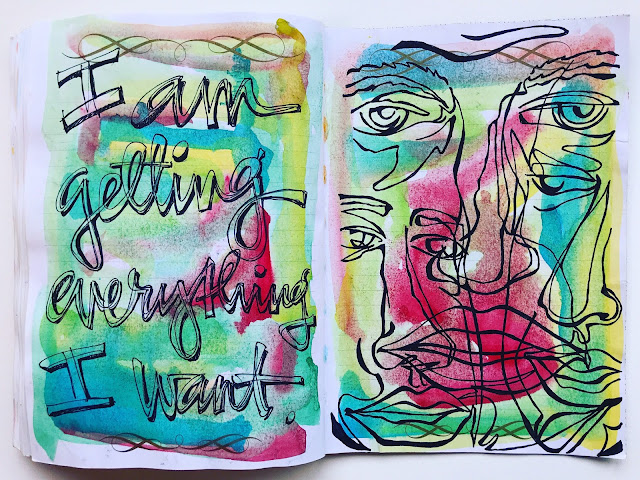 I am
getting
everything
I want.